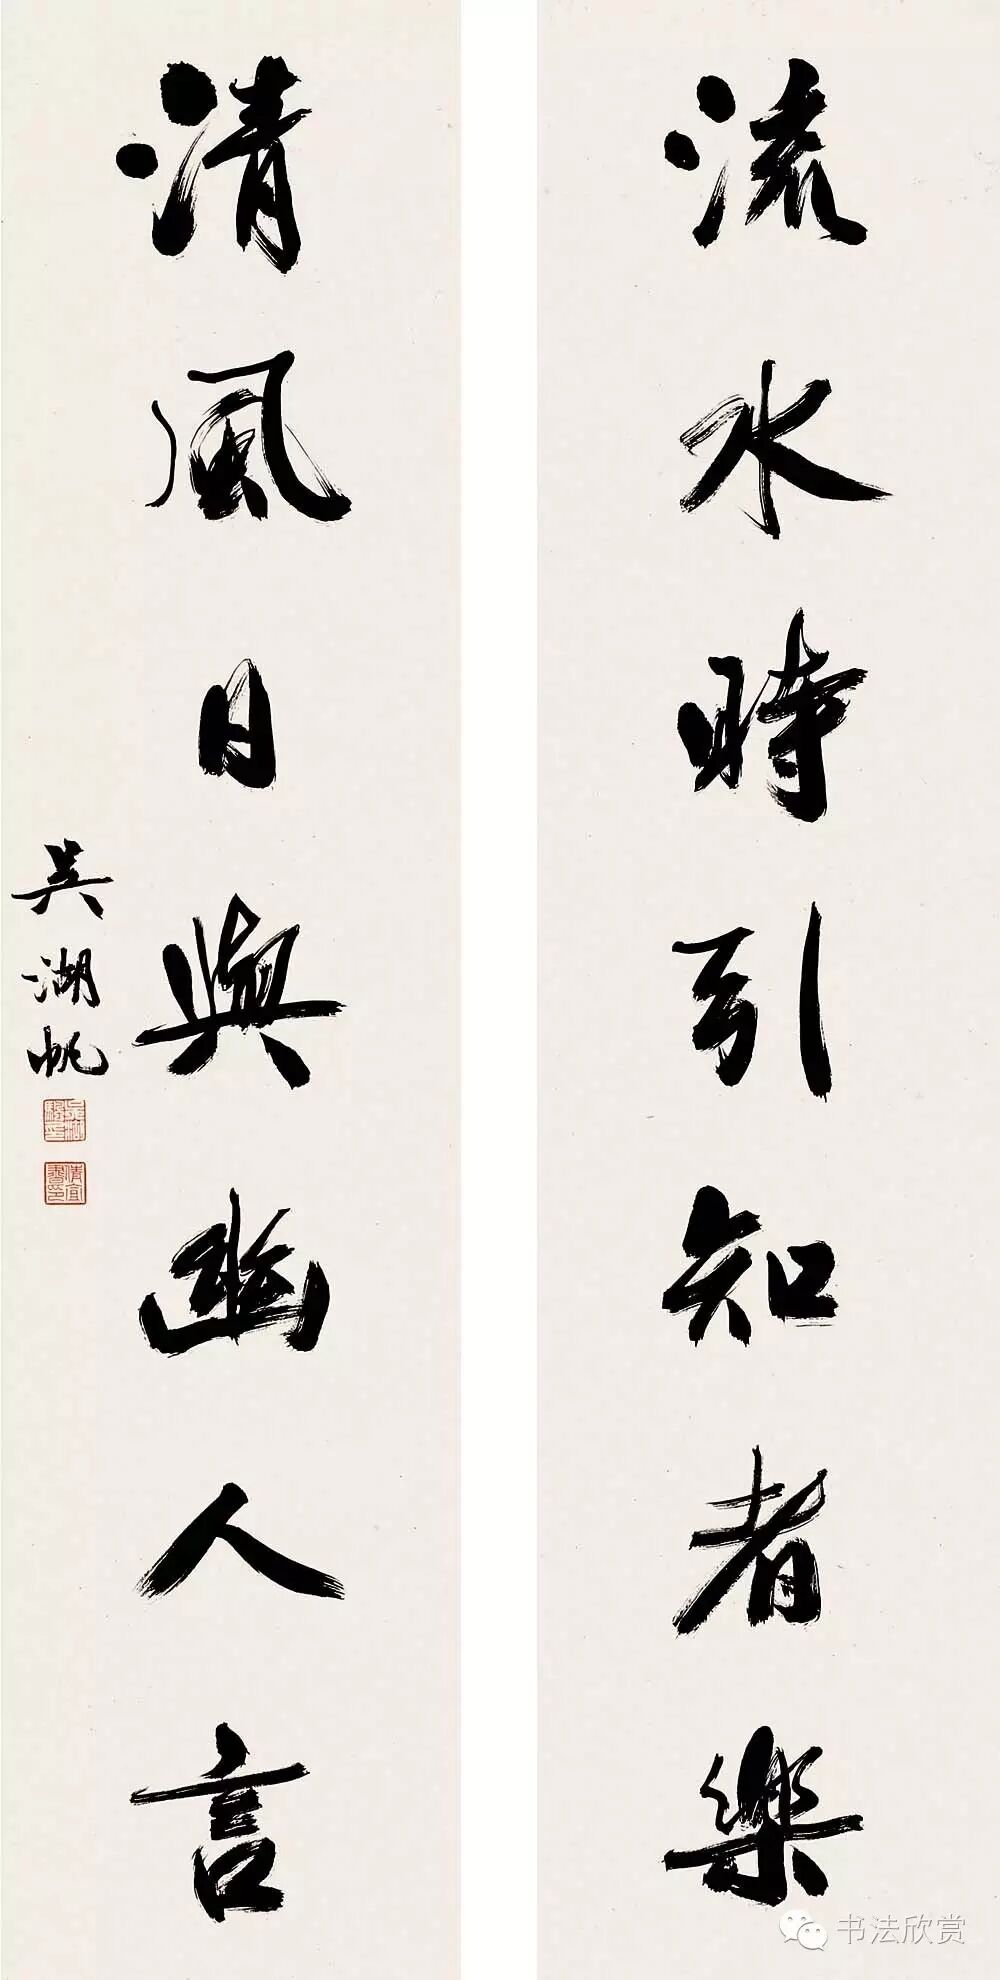 流水時引知者樂
清風日與幽人言
吳湖帆
书法欣赏